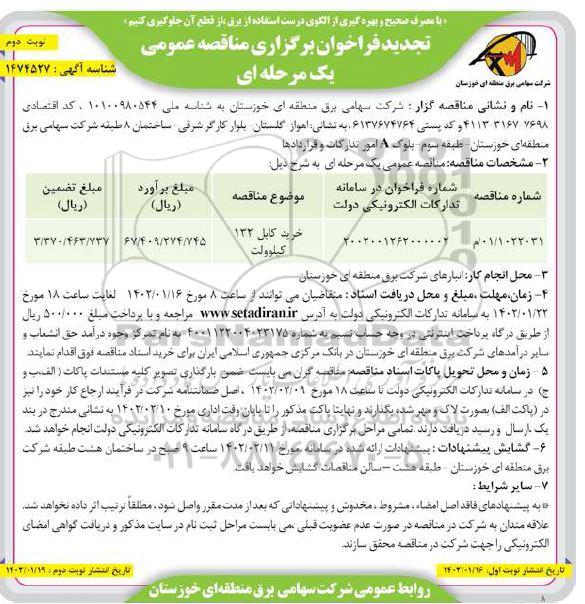 « با مصرف صحیح و بهره گیری از الگوی درست استفاده از برق ،از قطع آن جلوگیری کنیم »
نوبت دوم
تجدید فراخوان برگزاری مناقصه عمومی
یک مرحله ای
شناسه آگهی : ۱۴۷۴۵۲۷
شرکت سهامی برق منطقه ای خوزستان
۱- نام و نشانی مناقصه گزار : شرکت سهامی برق منطقه ای خوزستان به شناسه ملی ۱۰۱۰۰۹۸۰۵۴۴ ، کد اقتصادی
۴۱۱۳-۳۱۶۷-۷۶۹۸ و کد پستی ۶۱۳۷۶۷۴۷۶۴ ،به نشانی: اهواز گلستان- بلوار کارگر شرقی- ساختمان ۸ طبقه شرکت سهامی برق
منطقه‌ای خوزستان- طبقه سوم- بلوک A امور تدارکات و قراردادها
۲- مشخصات مناقصه: مناقصه عمومی یک مرحله ای به شرح ذیل:
شماره مناقصه
شماره فراخوان در سامانه تدارکات الکترونیکی دولت
موضوع مناقصه
مبلغ برآورد (ریال)
مبلغ تضمین (ریال)
۰۱/۱۰۲۲۰۳۱/م
۲۰۰۲۰۰۱۲۶۲۰۰۰۰۰۲
خرید کابل ۱۳۲ کیلوولت
۶۷/۴۰۹/۲۷۴/۷۴۵
۳/۳۷۰/۴۶۳/۷۳۷
۳- محل انجام کار: انبارهای شرکت برق منطقه ای خوزستان
۴- زمان،مهلت ،مبلغ و محل دریافت اسناد: متقاضیان می توانند از ساعت ۸ مورخ ۱۴۰۲/۰۱/۱۶ لغایت ساعت ۱۸ مورخ
۱۴۰۲/۰۱/۲۲ به سامانه تدارکات الکترونیکی دولت به آدرس www.setadiran.ir مراجعه و با پرداخت مبلغ ۵۰۰/۰۰۰ ریال
از طریق درگاه پرداخت اینترنتی در وجه حساب نسیم به شماره ۴۰۰۱۱۲۲۰۰۴۰۲۳۱۷۵ به نام تمرکز وجوه درآمد حق انشعاب و
سایر درآمدهای شرکت برق منطقه ای خوزستان در بانک مرکزی جمهوری اسلامی ایران برای خرید اسناد مناقصه فوق اقدام نمایند.
۵- زمان و محل تحویل پاکات اسناد مناقصه: مناقصه گران می بایست ضمن بارگذاری تصویر کلیه مستندات پاکات ( الف،ب و
ج) در سامانه تدارکات الکترونیکی دولت تا ساعت ۱۸ مورخ ۱۴۰۲/۰۲/۰۹ ، اصل ضمانتنامه شرکت در فرآیند ارجاع کار خود را نیز
در (پاکت الف) بصورت لاک و مهر شده بگذارند و نهایتا پاکت مذکور را تا پایان وقت اداری مورخ ۱۴۰۲/۰۲/۱۰ به نشانی مندرج در بند
یک ،ارسال و رسید دریافت دارند. تمامی مراحل برگزاری مناقصه،از طریق درگاه سامانه تدارکات الکترونیکی دولت انجام خواهد شد.
۶- گشایش پیشنهادات : پیشنهادات ارائه شده در سامانه ،مورخ ۱۴۰۲/۰۲/۱۱ ساعت ۹ صبح در ساختمان هشت طبقه شرکت
برق منطقه ای خوزستان - طبقه هشت –سالن مناقصات گشایش خواهد یافت.
۷- سایر شرایط :
*به پیشنهادهای فاقد اصل امضاء ، مشروط ، مخدوش و پیشنهاداتی که بعد از مدت مقرر واصل شود ، مطلقاً ترتیب اثر داده نخواهد شد.
علاقه مندان به شرکت در مناقصه در صورت عدم عضویت قبلی ،می بایست مراحل ثبت نام در سایت مذکور و دریافت گواهی امضای
الکترونیکی را جهت شرکت در مناقصه محقق سازند.
تاریخ انتشار نوبت اول: ۱۴۰۲/۰۱/۱۶
تاریخ انتشار نوبت دوم : ۱۴۰۲/۰۱/۱۹
روابط عمومی شرکت سهامی برق منطقه‌ای خوزستان